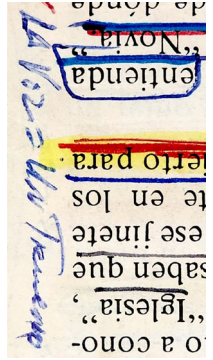 to a cono-
“Iglesia”,
saben que
ese jinete
te en los
erto para
entienda
“Novia,”
de dónde
LA Voz Un Trueno